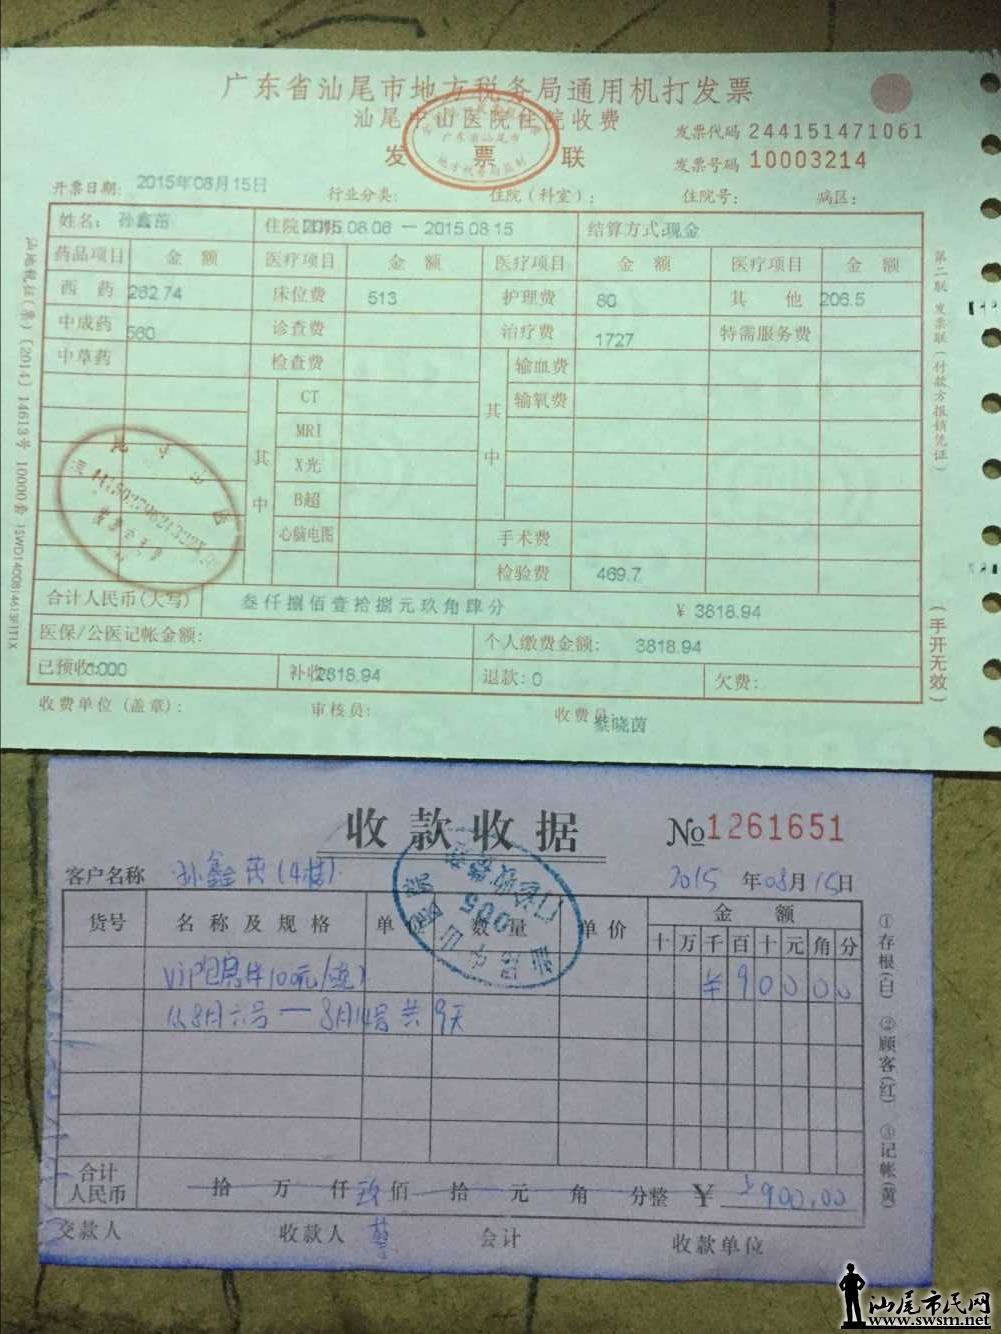 广东省汕尾市地方税务局通用机打发票
汕尾中山医院住院收费
发票联
发票代码 244151471061
发票号码 10003214
开票日期: 2015年08月15日 行业分类: 住院(科室): 住院号: 病区:
姓名: 孙鑫茁 住院日期:2015.08.06 — 2015.08.15 结算方式:现金
药品项目 金额 医疗项目 金额 医疗项目 金额 医疗项目 金额
西药 262.74 床位费 513 护理费 80 其他 206.5
中成药 560 诊查费 治疗费 1727 特需服务费
中草药 检查费 输血费
CT 输氧费
MRI
其中 X光 其中
B超
心脑电图 手术费
检验费 469.7
合计人民币(大写) 叁仟捌佰壹拾捌元玖角肆分 ¥ 3818.94
医保/公医记帐金额: 个人缴费金额: 3818.94
已预收:1000 补收:2818.94 退款: 0 欠费:
收费单位(盖章): 审核员: 收费员: 蔡晓茵
第二联 发票联(付款方报销凭证)
(手开无效)
收款收据 №1261651
客户名称 孙鑫茁(4楼) 2015年08月15日
货号 名称及规格 单位 数量 单价 金额
十万千百十元角分
¥90000
从8月六号—8月14号共9天
合计人民币 拾 万 仟 玖佰 拾 元 角 分整 ¥ 900.00
交款人 收款人 会计 收款单位
①存根(白) ②顾客(红) ③记帐(黄)
汕尾市民网
www.swsm.net